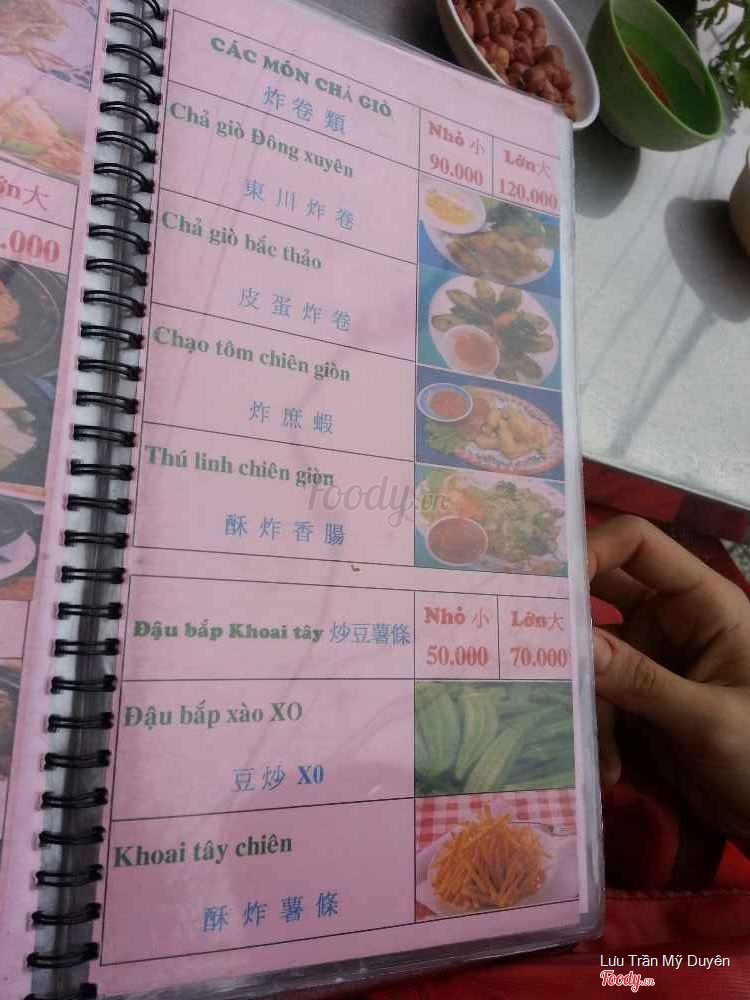 ớn大
.000
CÁC MÓN CHẢ GIÒ
炸卷類
Nhỏ 小
90.000
Lớn大
120.000
Chả giò Đông xuyên
東川炸卷
Chả giò bắc thảo
皮蛋炸卷
Chạo tôm chiên giòn
炸庶蝦
Thú linh chiên giòn
酥炸香腸
Foody.vn
Đậu bắp Khoai tây 炒豆薯條
Nhỏ 小
50.000
Lớn大
70.000
Đậu bắp xào XO
豆炒 X0
Khoai tây chiên
酥炸薯條
Lưu Trần Mỹ Duyên
Foody.vn